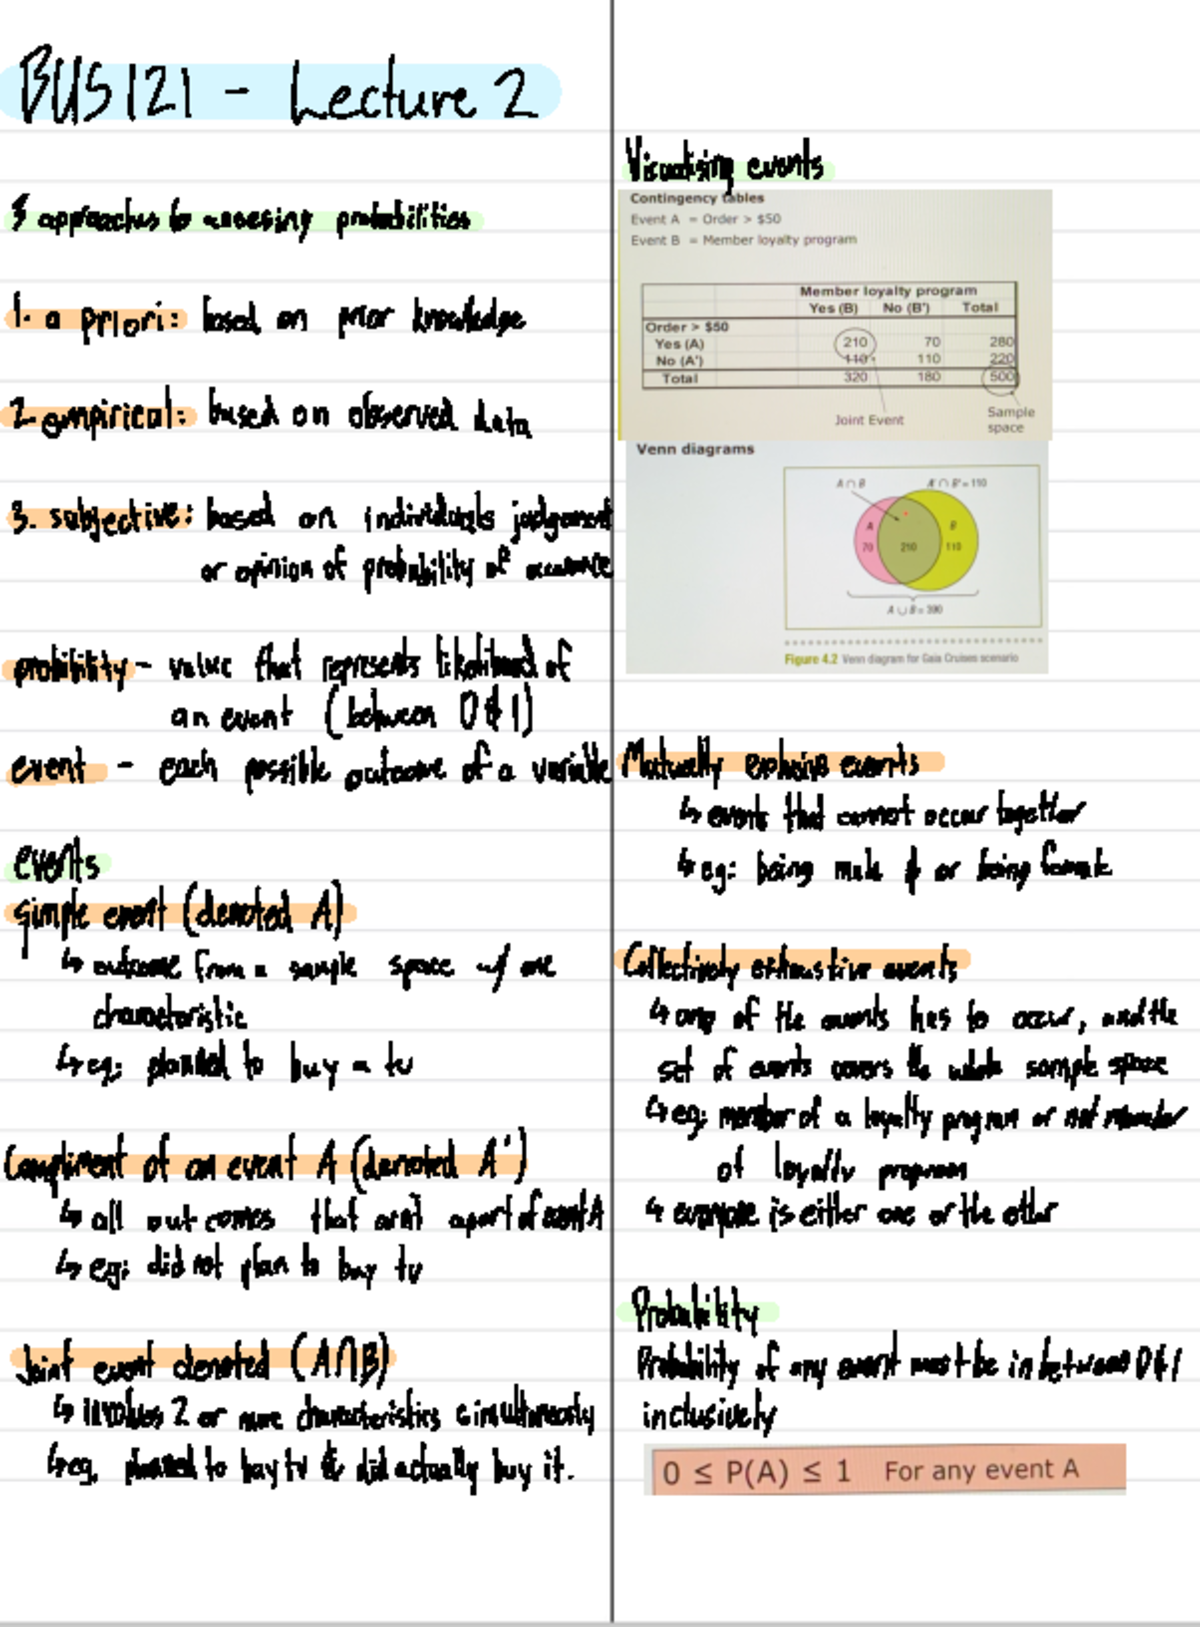 BUS121 - Lecture 2
3 approaches to assesing probabilities
1. a priori: based on prior knowledge
2. empirical: based on observed data
3. subjective: based on individuals judgement
or opinion of probability of occurance
probibility - value that represents likelihood of
an event (between 0 & 1)
event - each possible outcome of a variable
events
simple event (denoted A)
↳ outcome from a sample space w/ one
characteristic
↳ eg: planned to buy a tv
Compliment of an event A (denoted A')
↳ all outcomes that arn't apart of event A
↳ eg: did not plan to buy tv
Joint event denoted (A∩B)
↳ involves 2 or more characteristics simultaneously
↳ eg. planned to buy tv & did actually buy it.
Visualising events
Contingency tables
Event A = Order > $50
Event B = Member loyalty program
Member loyalty program
Yes (B) No (B') Total
Order > $50
Yes (A) 210 70 280
No (A') 110 110 220
Total 320 180 500
Joint Event
Sample
space
Venn diagrams
A ∩ B A' ∩ B = 110
A B
70 210 110
A ∪ B = 390
Figure 4.2 Venn diagram for Gaia Cruises scenario
Mutually exclusive events
↳ events that cannot occur together
↳ eg: being male & or being female
Collectively exhaustive events
↳ one of the events has to occur, and the
set of events covers the whole sample space
↳ eg: member of a loyalty program or not member
of loyalty program
↳ everyone is either one or the other
Probability
Probability of any event must be in between 0 & 1
inclusively
0 ≤ P(A) ≤ 1 For any event A